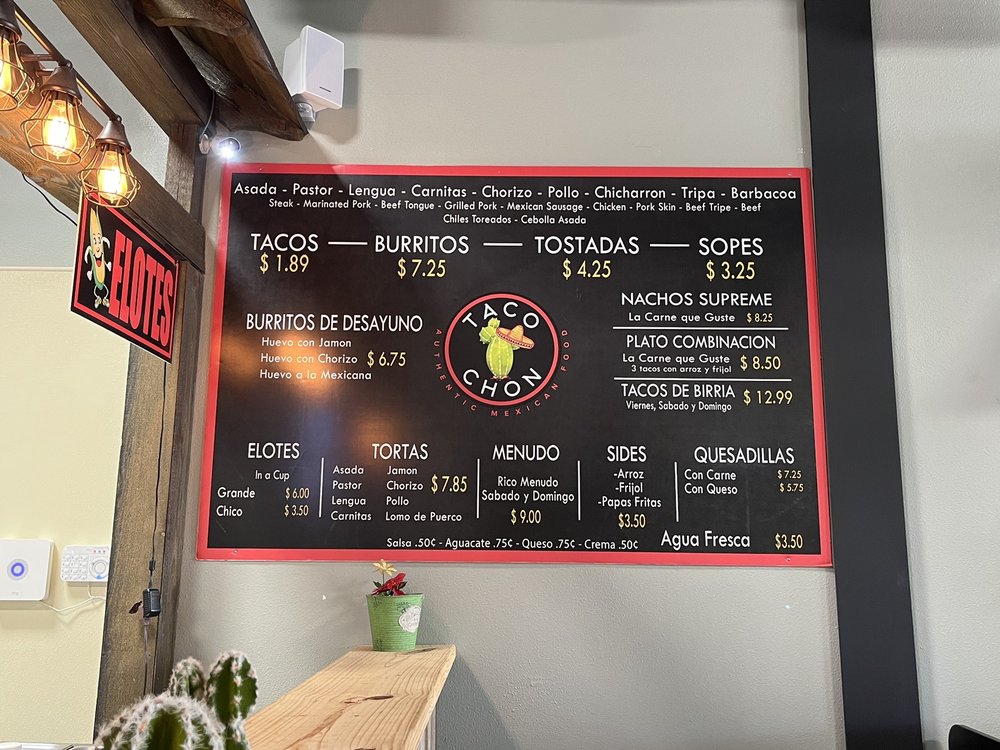 ELOTES
Asada - Pastor - Lengua - Carnitas - Chorizo - Pollo - Chicharron - Tripa - Barbacoa
Steak - Marinated Pork - Beef Tongue - Grilled Pork - Mexican Sausage - Chicken - Pork Skin - Beef Tripe - Beef
Chiles Toreados - Cebolla Asada
TACOS — BURRITOS — TOSTADAS — SOPES
$ 1.89 $ 7.25 $ 4.25 $ 3.25
BURRITOS DE DESAYUNO
Huevo con Jamon
Huevo con Chorizo $ 6.75
Huevo a la Mexicana
TACO
CHON
AUTHENTIC MEXICAN FOOD
NACHOS SUPREME
La Carne que Guste $ 8.25
PLATO COMBINACION
La Carne que Guste $ 8.50
3 tacos con arroz y frijol
TACOS DE BIRRIA $ 12.99
Viernes, Sabado y Domingo
ELOTES
In a Cup
Grande $ 6.00
Chico $ 3.50
TORTAS
Asada Jamon
Pastor Chorizo $ 7.85
Lengua Pollo
Carnitas Lomo de Puerco
MENUDO
Rico Menudo
Sabado y Domingo
$ 9.00
SIDES
-Arroz
-Frijol
-Papas Fritas
$3.50
QUESADILLAS
Con Carne $ 7.25
Con Queso $ 5.75
Salsa .50¢ - Aguacate .75¢ - Queso .75¢ - Crema .50¢
Agua Fresca $3.50